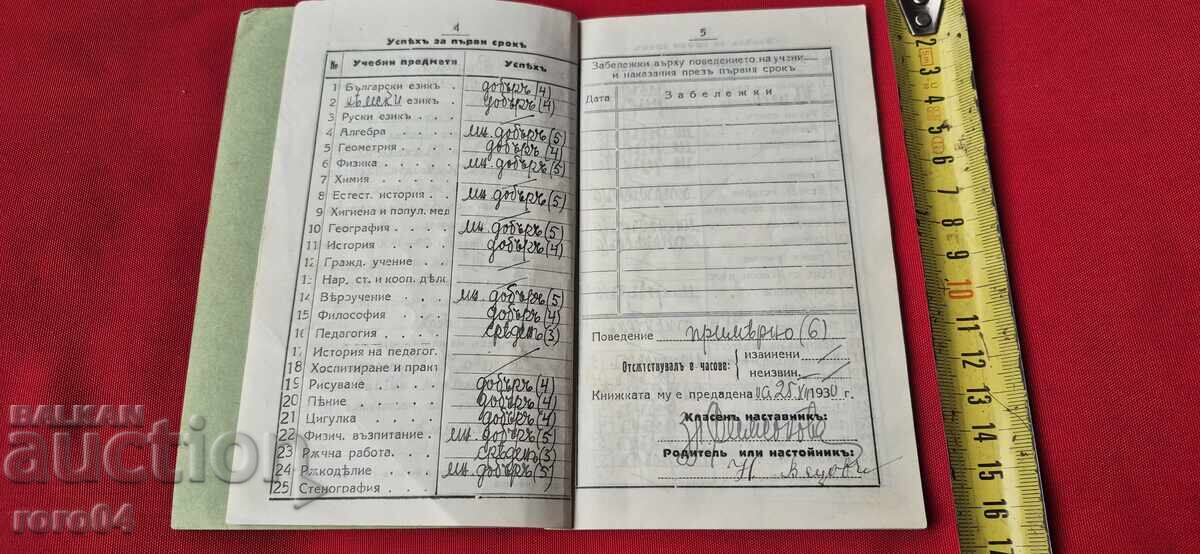 4
Успѣхъ за първи срокъ
№ Учебни предмети Успѣхъ
1 Български езикъ . добъръ (4)
2 нѣмски езикъ . . добъръ (4)
3 Руски езикъ
4 Алгебра . . . . мн. добъръ (5)
5 Геометрия . . . добъръ (4)
6 Физика . . . . мн. добъръ (5)
7 Химия . . . .
8 Естест. история . . мн. добъръ (5)
9 Хигиена и попул. мед
10 География . . . . мн. добъръ (5)
11 История . . . . добъръ (4)
12 Гражд. учение . .
13 Нар. ст. и кооп. дѣло
14 Вѣроучение . . . мн. добъръ (5)
15 Философия . . . добъръ (4)
16 Педагогия . . . . среденъ (3)
17 История на педагог.
18 Хоспитиране и практ
19 Рисуване . . . . добъръ (4)
20 Пѣние . . . . добъръ (4)
21 Цигулка . . . . добъръ (4)
22 Физич. възпитание . мн. добъръ (5)
23 Рѫчна работа . . . среденъ (3)
24 Рѫкодѣлие . . . . мн. добъръ (5)
25 Стенография . . .
5
Забележки върху поведението на учени
и наказания презъ първия срокъ
Дата Забележки
Поведение примѣрно (6)
Отсѫтствувалъ е часове: извинени
неизвин.
Книжката му е предадена на 25 1930 г.
Класенъ наставникъ:
Родител или настойникъ:
Н
БАЛКАН АУКЦИОН
roro64
2 3 4 5 6 7 8 9 10 11 12 13 14 15 16 17